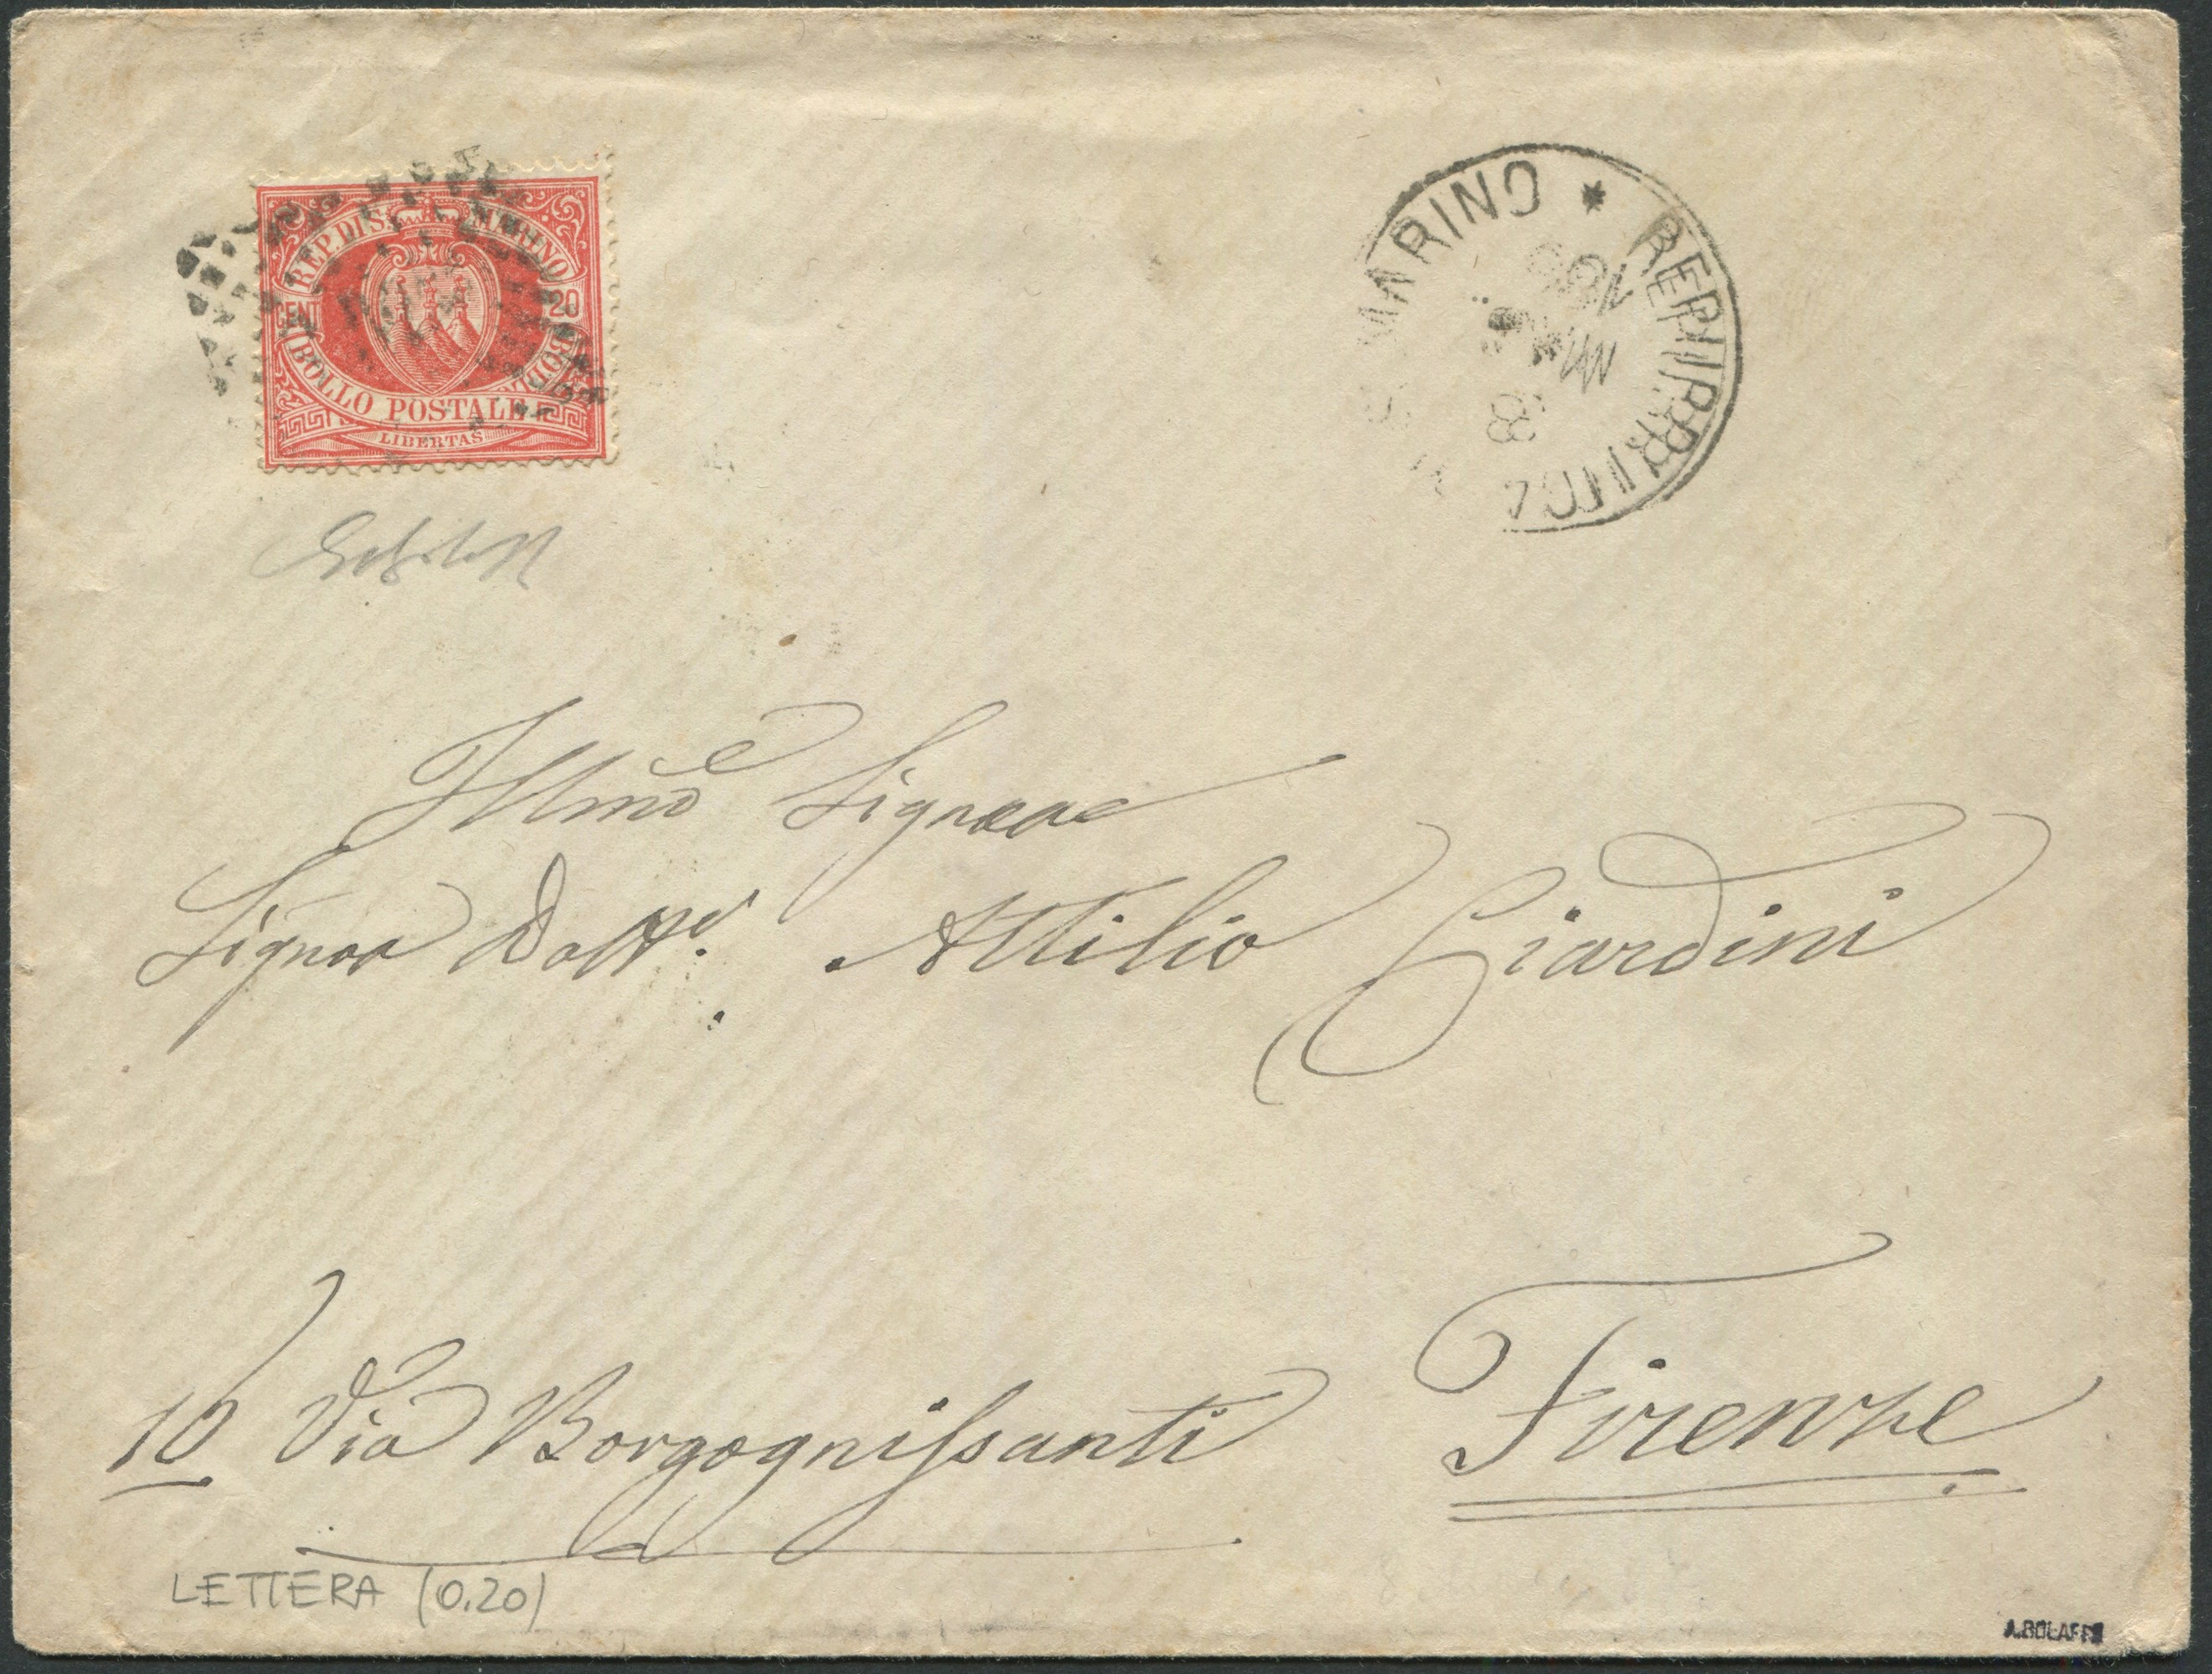 REP. DI S. MARINO
CENT 20
BOLLO POSTALE
LIBERTAS
MARINO * REPUB
88
Illmo Signore
Signor Dottr. Attilio Giardini
10 Via Borgognissanti Firenze
LETTERA (0.20)
A.BOLAFFI